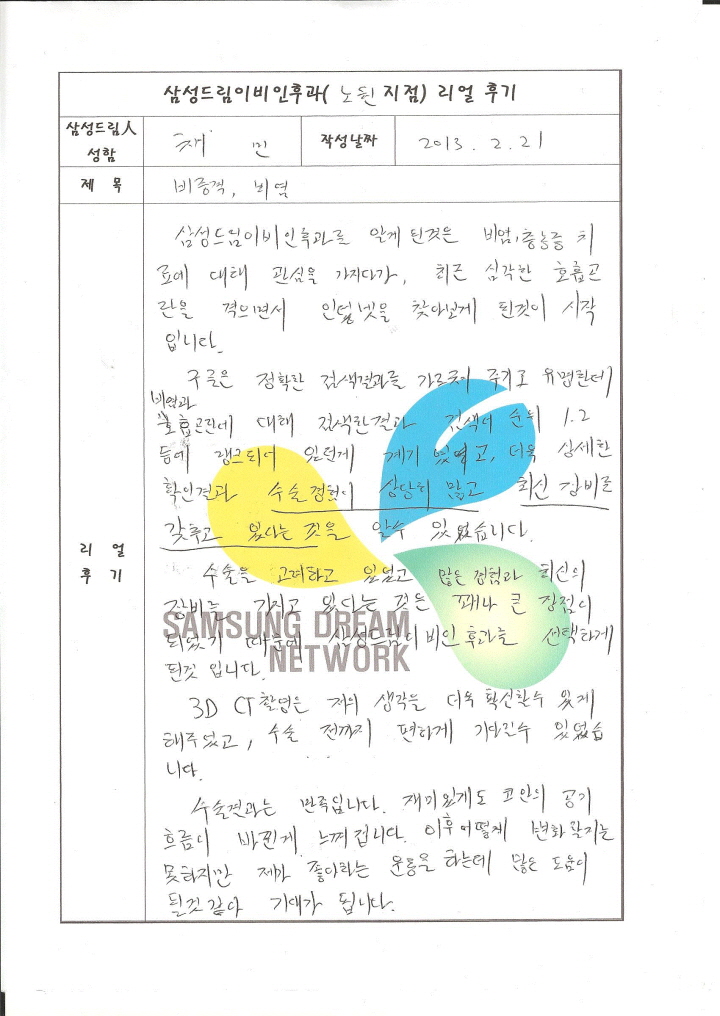 삼성드림이비인후과( 노원 지점) 리얼 후기
삼성드림人 성함
채 민
작성날짜
2013. 2. 21
제 목
비중격, 비염
리 얼 후 기
삼성드림이비인후과를 알게 된것은 비염, 축농증 치
료에 대해 관심을 가지다가, 최근 심각한 호흡곤
란을 격으면서 인텀넷을 찾아보게 된것이 시작
입니다.
구글은 정확한 검색결과를 가르쳐 주기로 유명한데
비염과
호흡곤란에 대해 검색한결과 검색에 순위 1.2
등에 랭크되어 있던게 계기 였고, 더욱 상세한
확인결과 수술경험이 상당히 많고 최신 장비를
갖추고 있다는 것을 알수 있었습니다.
수술을 고려하고 있었고 많은 경험과 최신의
장비를 가지고 있다는 것은 꽤나 큰 장점이
되었기 때문에 삼성드림이비인후과를 선택하게
된것 입니다.
SAMSUNG DREAM
NETWORK
3D CT촬영은 저의 생각을 더욱 확신할수 있게
해주었고, 수술 전까지 편하게 기다릴수 있었습
니다.
수술결과는 만족입니다. 재미있게도 코안의 공기
흐름이 바뀐게 느껴집니다. 이후 어떻게 변화할지는
못하지만 제가 좋아하는 운동을 하는데 많은 도움이
될것 같아 기대가 됩니다.